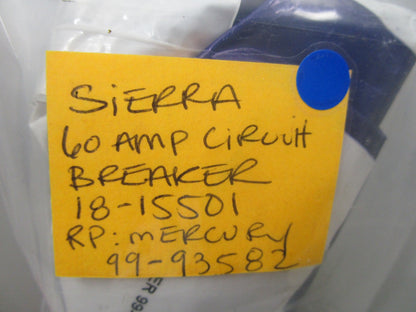 SiERRA
60 AMP CiRCUIT
BREAKER
18-15501
RP: MERCURY
99-93582
ER 99